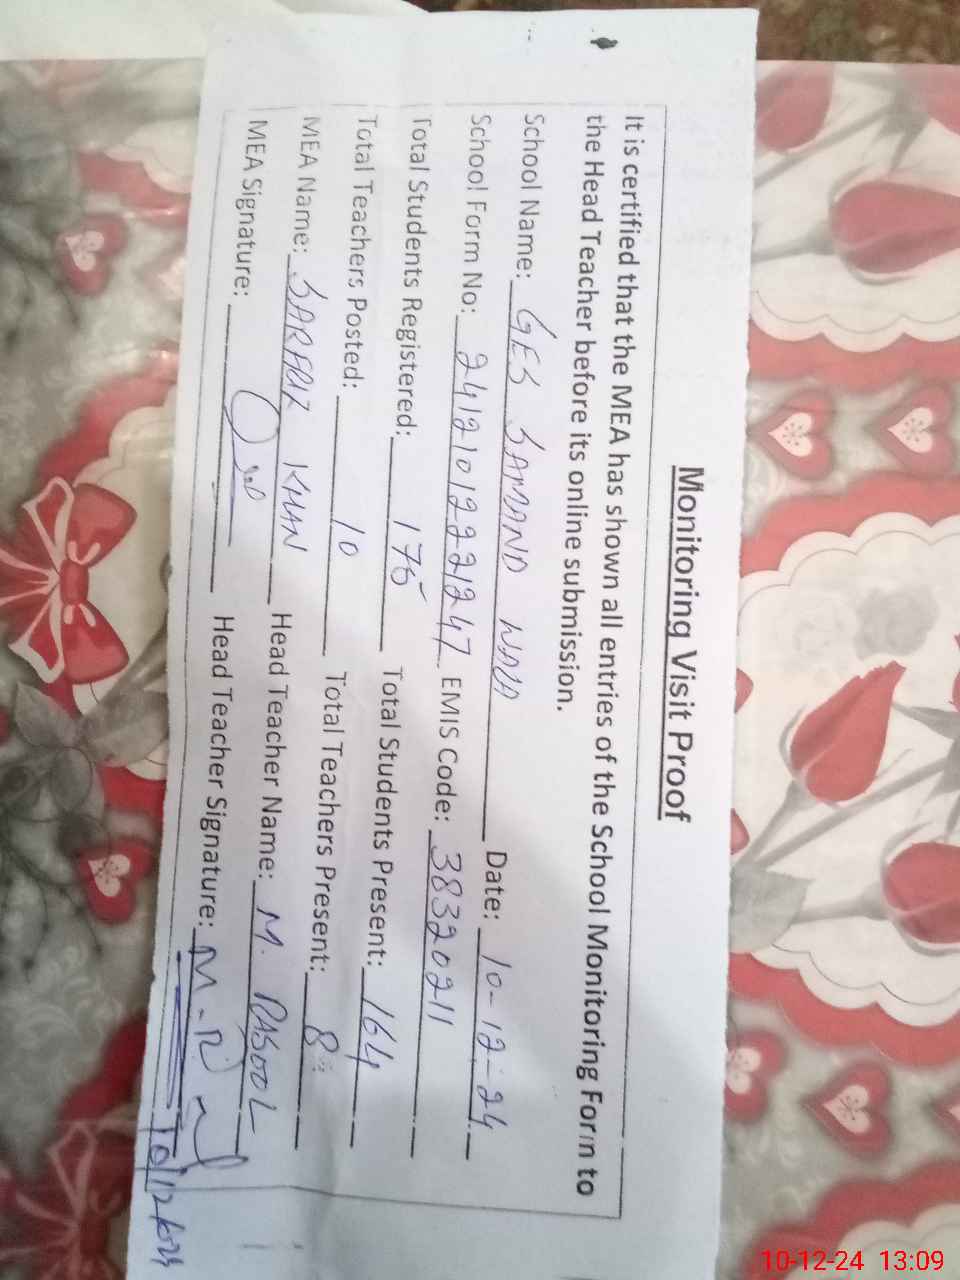 Monitoring Visit Proof
It is certified that the MEA has shown all entries of the School Monitoring Form to
the Head Teacher before its online submission.
School Name: GES SAMAND WALA Date: 10-12-24
School Form No: 241210122221247 EMIS Code: 38320211
Total Students Registered: 175 Total Students Present: 164
Total Teachers Posted: 10 Total Teachers Present: 8
MEA Name: SARFRAZ KHAN Head Teacher Name: M. RASOOL
MEA Signature: Head Teacher Signature: M. R
10/12/2024
10-12-24 13:09